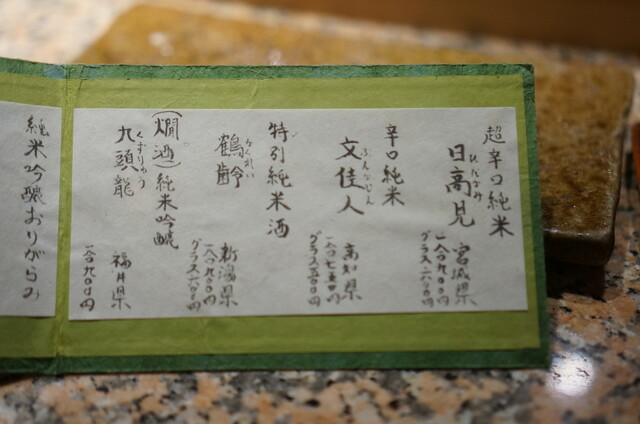 超辛口純米
日高見
ひたかみ
宮城県
一合九〇〇円
グラス六〇〇円
辛口純米
文佳人
ぶんかじん
高知県
一合七五〇円
グラス五〇〇円
特別純米酒
鶴齢
かくれい
新潟県
一合九〇〇円
グラス六〇〇円
(燗酒)純米吟醸
九頭龍
くずりゅう
福井県
一合九〇〇円
純米吟醸おりがらみ